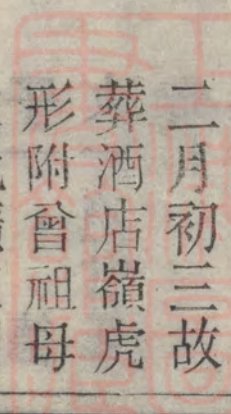 二月初三故
葬酒店嶺虎
形附曾祖母